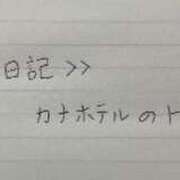 日記 >>
カナホテルのト